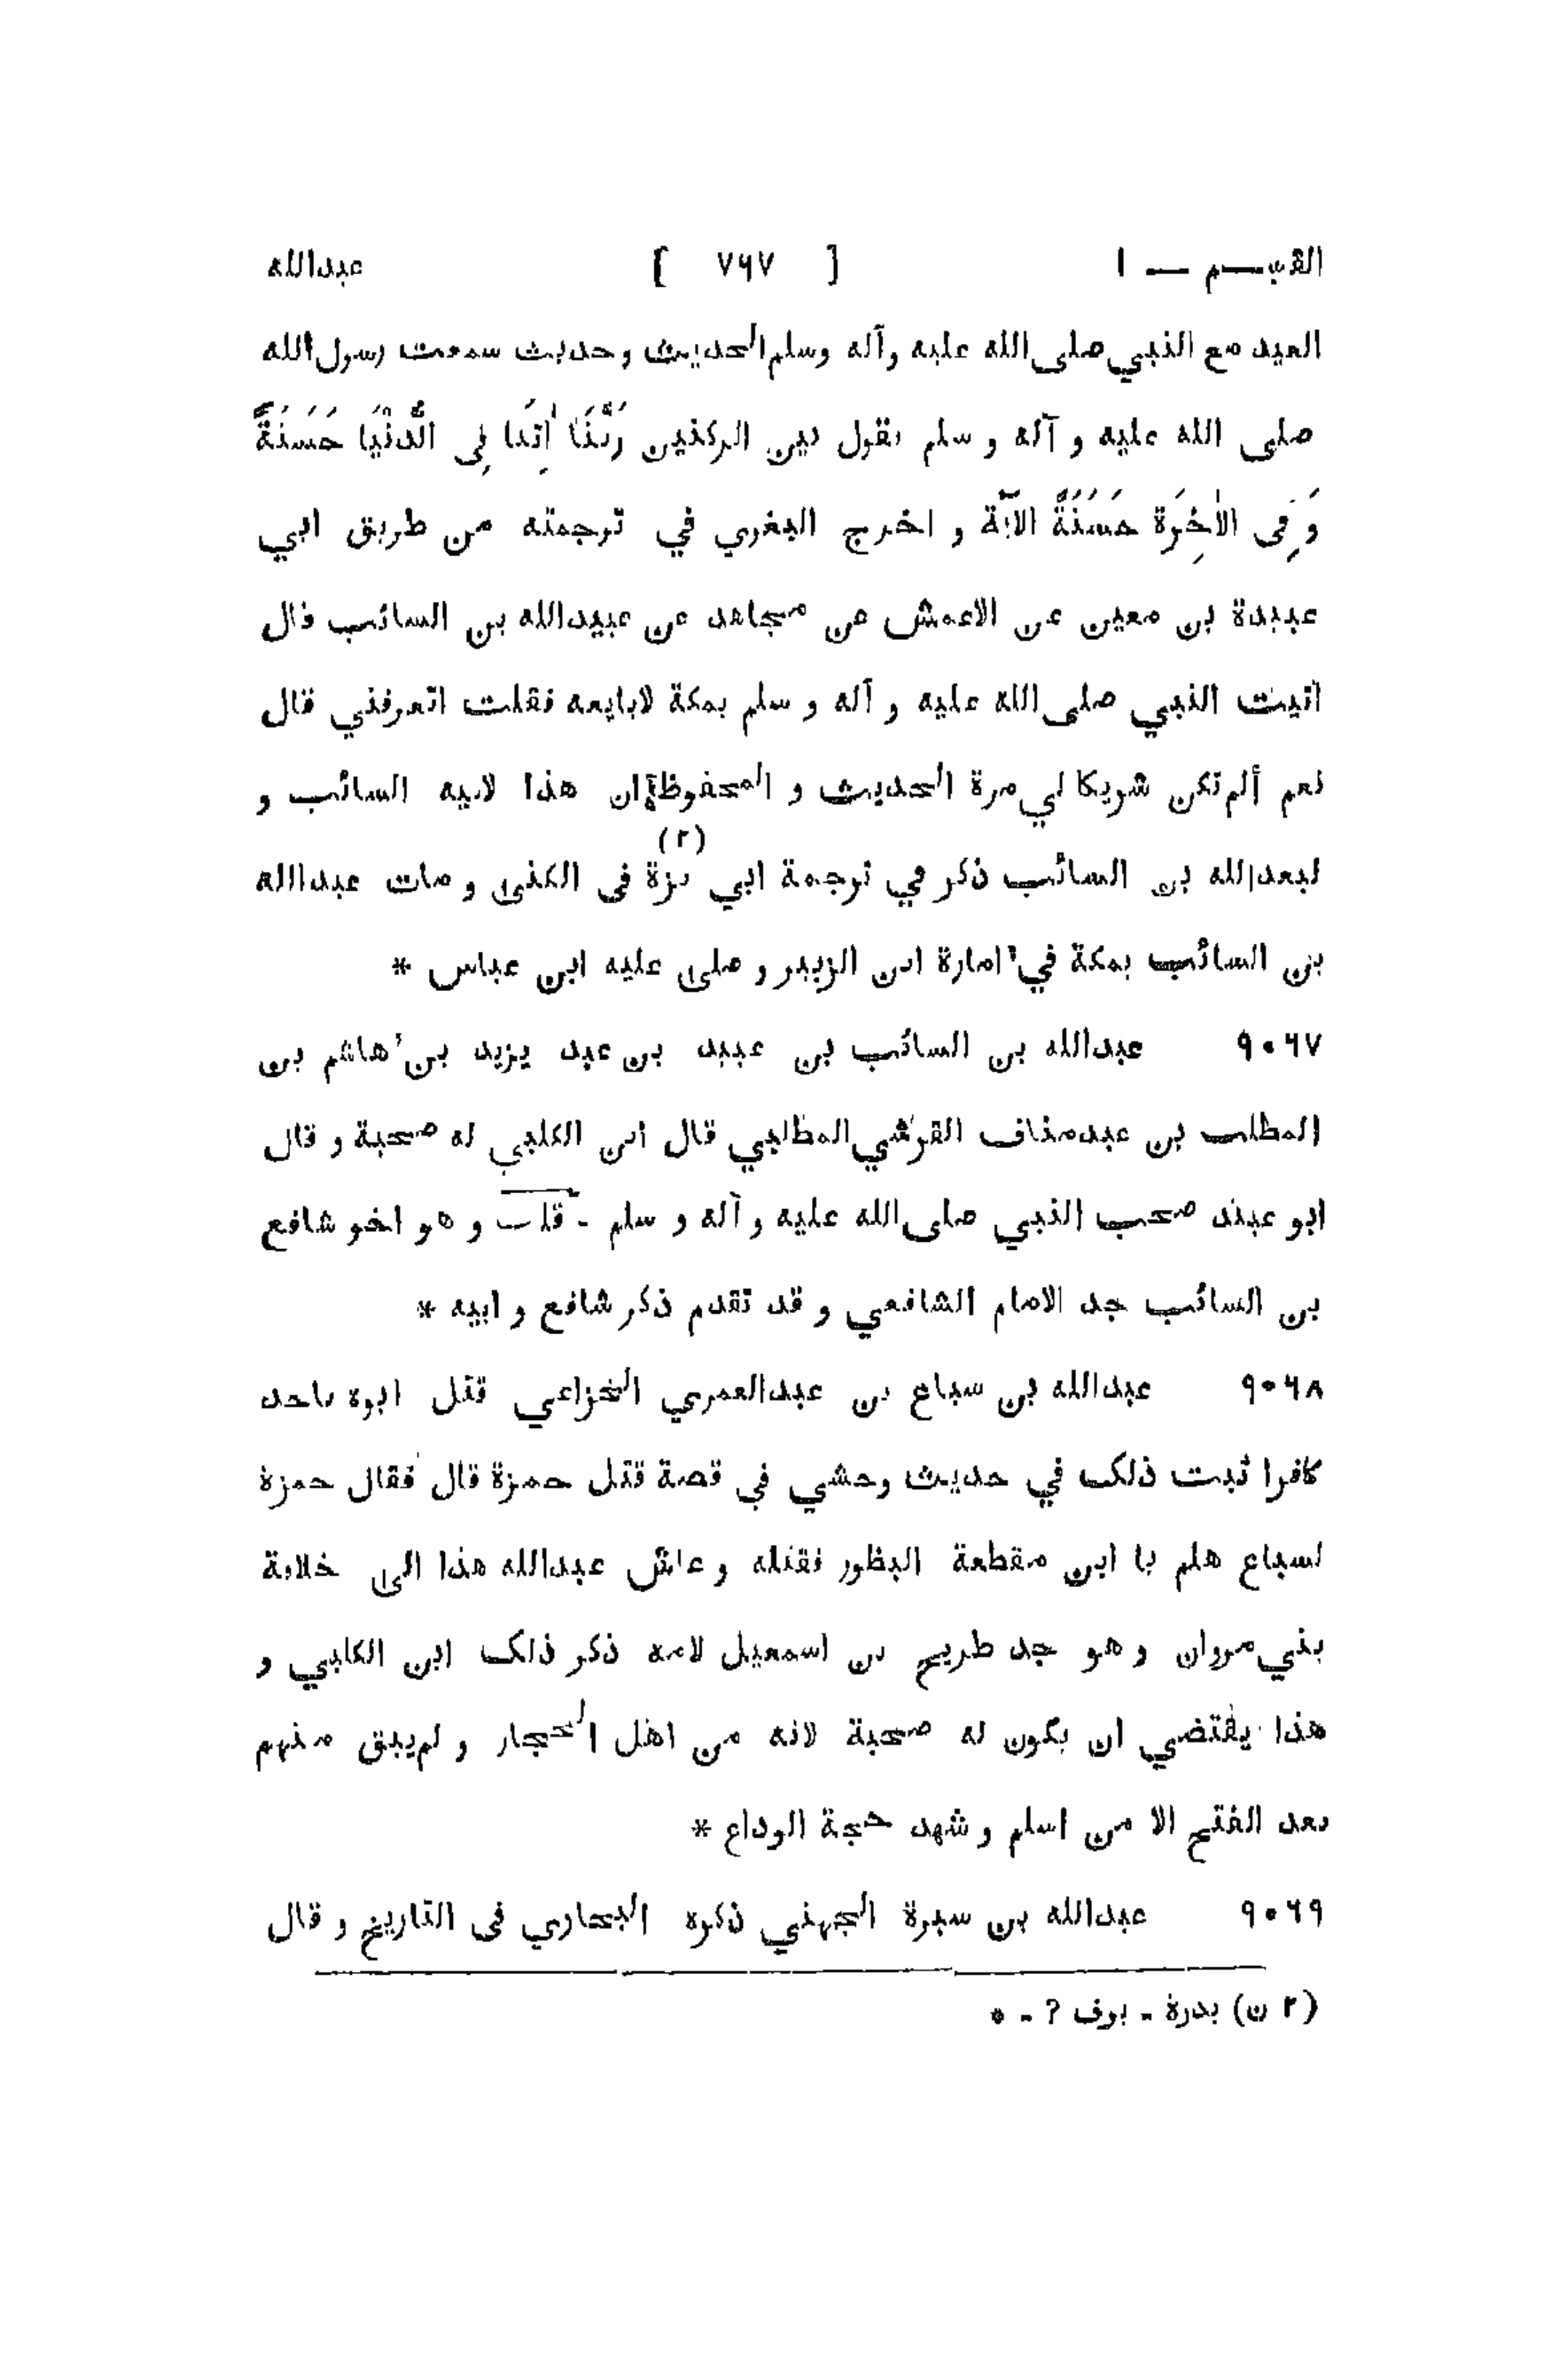 القسم — ١ [ ٧٦٧ ] عبدالله
العيد مع النبي صلى الله عليه وآله وسلم الحديث وحديث سمعت رسول الله
صلى الله عليه و آله و سلم يقول بين الركنين رَبَّنَا اٰتِنَا فِى الدُّنْيَا حَسَنَةً
وَ فِى الاٰخِرَة حَسَنَةً الآية و اخرج البغوي في ترجمته من طريق ابي
عبيدة بن معين عن الاعمش عن مجاهد عن عبيدالله بن السائب قال
اتيت النبي صلى الله عليه و آله و سلم بمكة لابايعه فقلت اتعرفني قال
نعم ألم تكن شريكا لي مرة الحديث و المحفوظ ان هذا لابيه السائب و
لبعدالله بن السائب ذكر في ترجمة ابي بزة (٢) فى الكنى و مات عبدالله
بن السائب بمكة في امارة ابن الزبير و صلى عليه ابن عباس *
٩٠٦٧ عبدالله بن السائب بن عبيد بن عبد يزيد بن هاشم بن
المطلب بن عبدمناف القرشي المطلبي قال ابن الكلبي له صحبة و قال
ابو عبيد صحب النبي صلى الله عليه و آله و سلم - قلت و هو اخو شافع
بن السائب جد الامام الشافعي و قد تقدم ذكر شافع و ابيه *
٩٠٦٨ عبدالله بن سباع بن عبدالعمري الخزاعي قتل ابوه باحد
كافرا ثبت ذلك في حديث وحشي في قصة قتل حمزة قال فقال حمزة
لسباع هلم يا ابن مقطعة البظور فقتله و عاش عبدالله هذا الى خلافة
بني مروان و هو جد طريح بن اسمعيل لامه ذكر ذلك ابن الكلبي و
هذا يقتضي ان يكون له صحبة لانه من اهل الحجاز و لم يبق منهم
بعد الفتح الا من اسلم و شهد حجة الوداع *
٩٠٦٩ عبدالله بن سبرة الجهني ذكره البخاري فى التاريخ و قال
(٢ ن) بدرة - برف ? - *